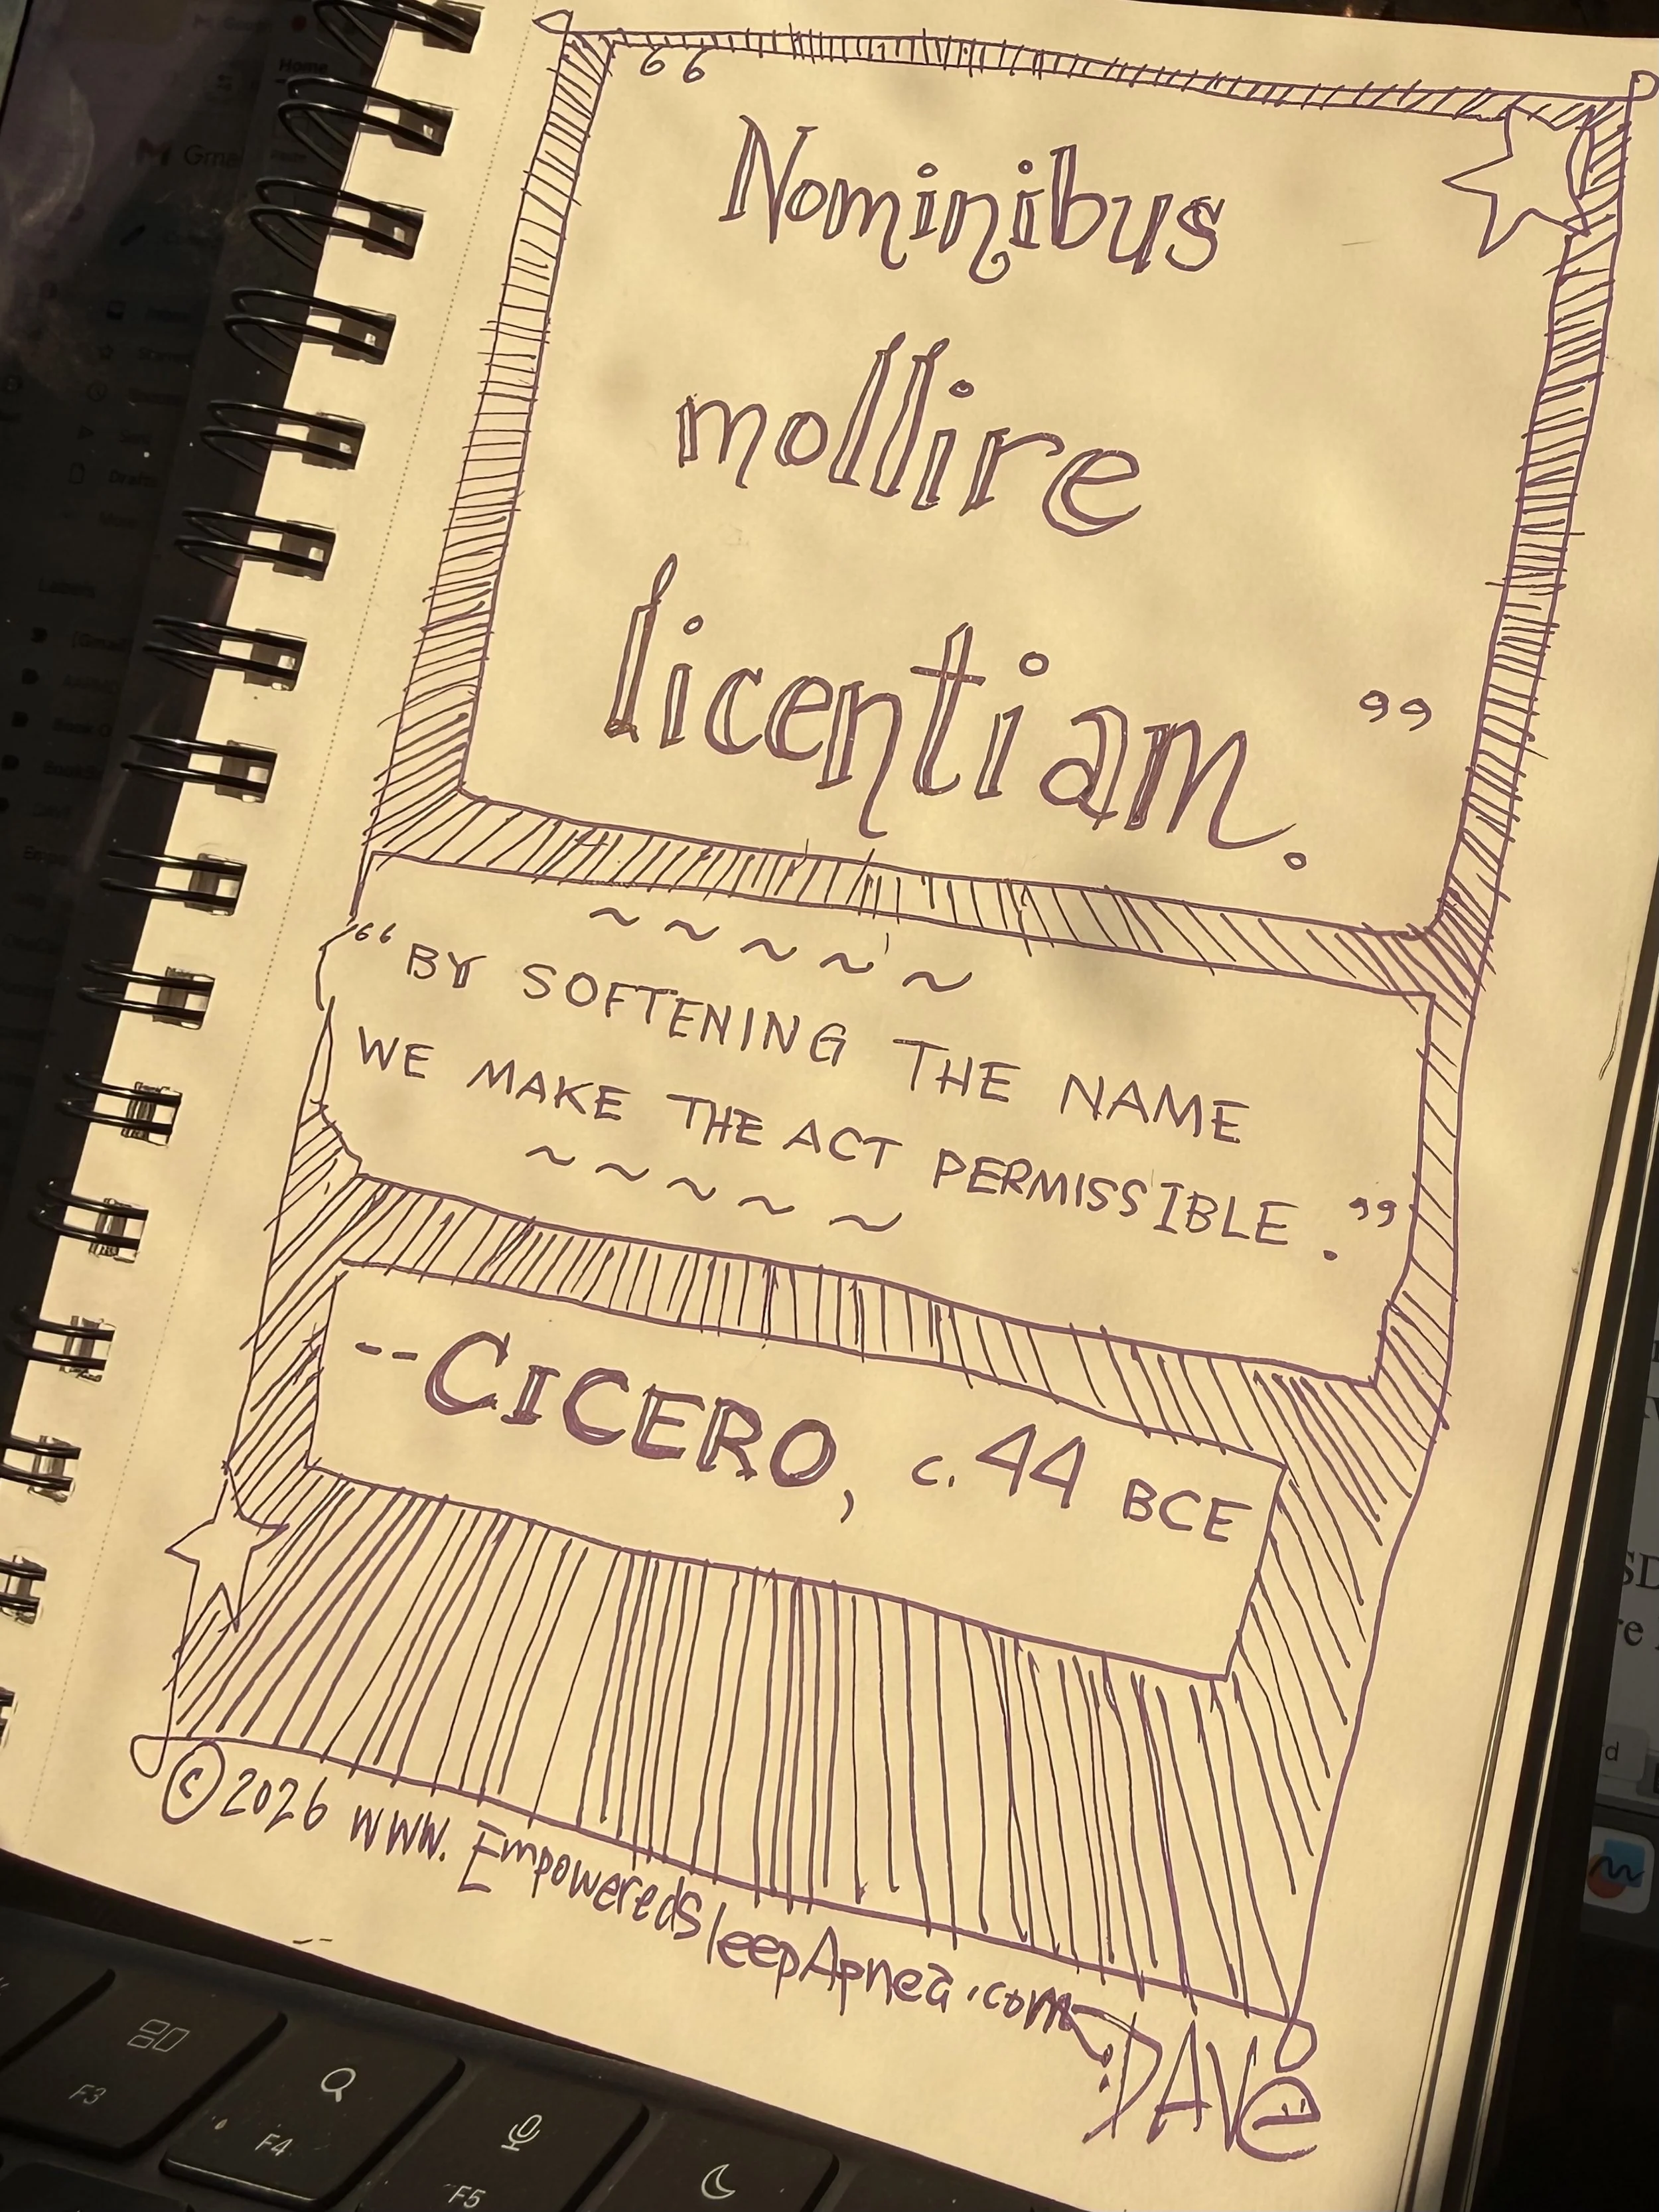 “
Nominibus
mollire
licentiam.”
~ ~ ~ ~ ~
“BY SOFTENING THE NAME
WE MAKE THE ACT PERMISSIBLE.”
~ ~ ~ ~ ~
--CICERO, c. 44 BCE
© 2026 www.EmpoweredSleepApnea.com
DAVe
Home
Gmail
Drafts
F3
F4
F5